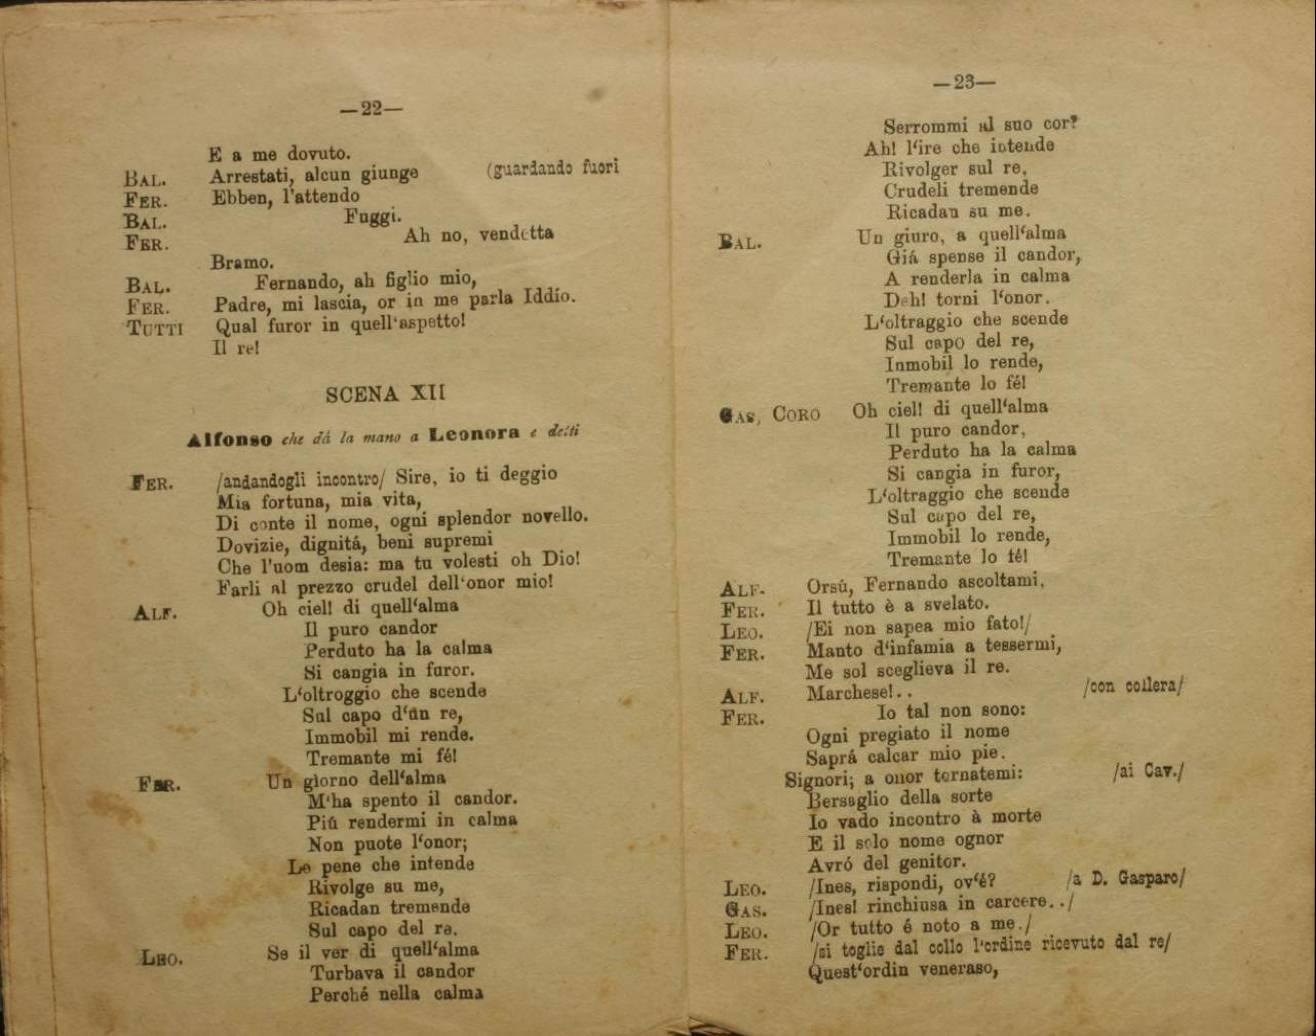 —22—
E a me dovuto.
BAL. Arrestati, alcun giunge (guardando fuori
FER. Ebben, l'attendo
BAL. Fuggi.
FER. Ah no, vendetta
Bramo.
BAL. Fernando, ah figlio mio,
FER. Padre, mi lascia, or in me parla Iddio.
TUTTI Qual furor in quell'aspetto!
Il re!
SCENA XII
Alfonso che dá la mano a Leonora e detti
FER. /andandogli incontro/ Sire, io ti deggio
Mia fortuna, mia vita,
Di conte il nome, ogni splendor novello.
Dovizie, dignitá, beni supremi
Che l'uom desia: ma tu volesti oh Dio!
Farli al prezzo crudel dell'onor mio!
ALF. Oh ciel! di quell'alma
Il puro candor
Perduto ha la calma
Si cangia in furor.
L'oltroggio che scende
Sul capo d'un re,
Immobil mi rende.
Tremante mi fé!
FER. Un giorno dell'alma
M'ha spento il candor.
Piú rendermi in calma
Non puote l'onor;
Le pene che intende
Rivolge su me,
Ricadan tremende
Sul capo del re.
LEO. Se il ver di quell'alma
Turbava il candor
Perché nella calma
—23—
Serrommi al suo cor?
Ah! l'ire che intende
Rivolger sul re,
Crudeli tremende
Ricadan su me.
BAL. Un giuro, a quell'alma
Giá spense il candor,
A renderla in calma
Deh! torni l'onor.
L'oltraggio che scende
Sul capo del re,
Inmobil lo rende,
Tremante lo fé!
GAS, CORO Oh ciel! di quell'alma
Il puro candor,
Perduto ha la calma
Si cangia in furor,
L'oltraggio che scende
Sul capo del re,
Immobil lo rende,
Tremante lo fé!
ALF. Orsú, Fernando ascoltami,
FER. Il tutto è a svelato.
LEO. /Ei non sapea mio fato!/
FER. Manto d'infamia a tessermi,
Me sol sceglieva il re.
ALF. Marchese!.. /con collera/
FER. Io tal non sono:
Ogni pregiato il nome
Saprá calcar mio pie.
Signori; a onor tornatemi: /ai Cav./
Bersaglio della sorte
Io vado incontro à morte
E il solo nome ognor
Avró del genitor.
LEO. /Ines, rispondi, ov'é? /a D. Gasparo/
GAS. /Ines! rinchiusa in carcere../
LEO. /Or tutto é noto a me./
FER. /si toglie dal collo l'ordine ricevuto dal re/
Quest'ordin veneraso,